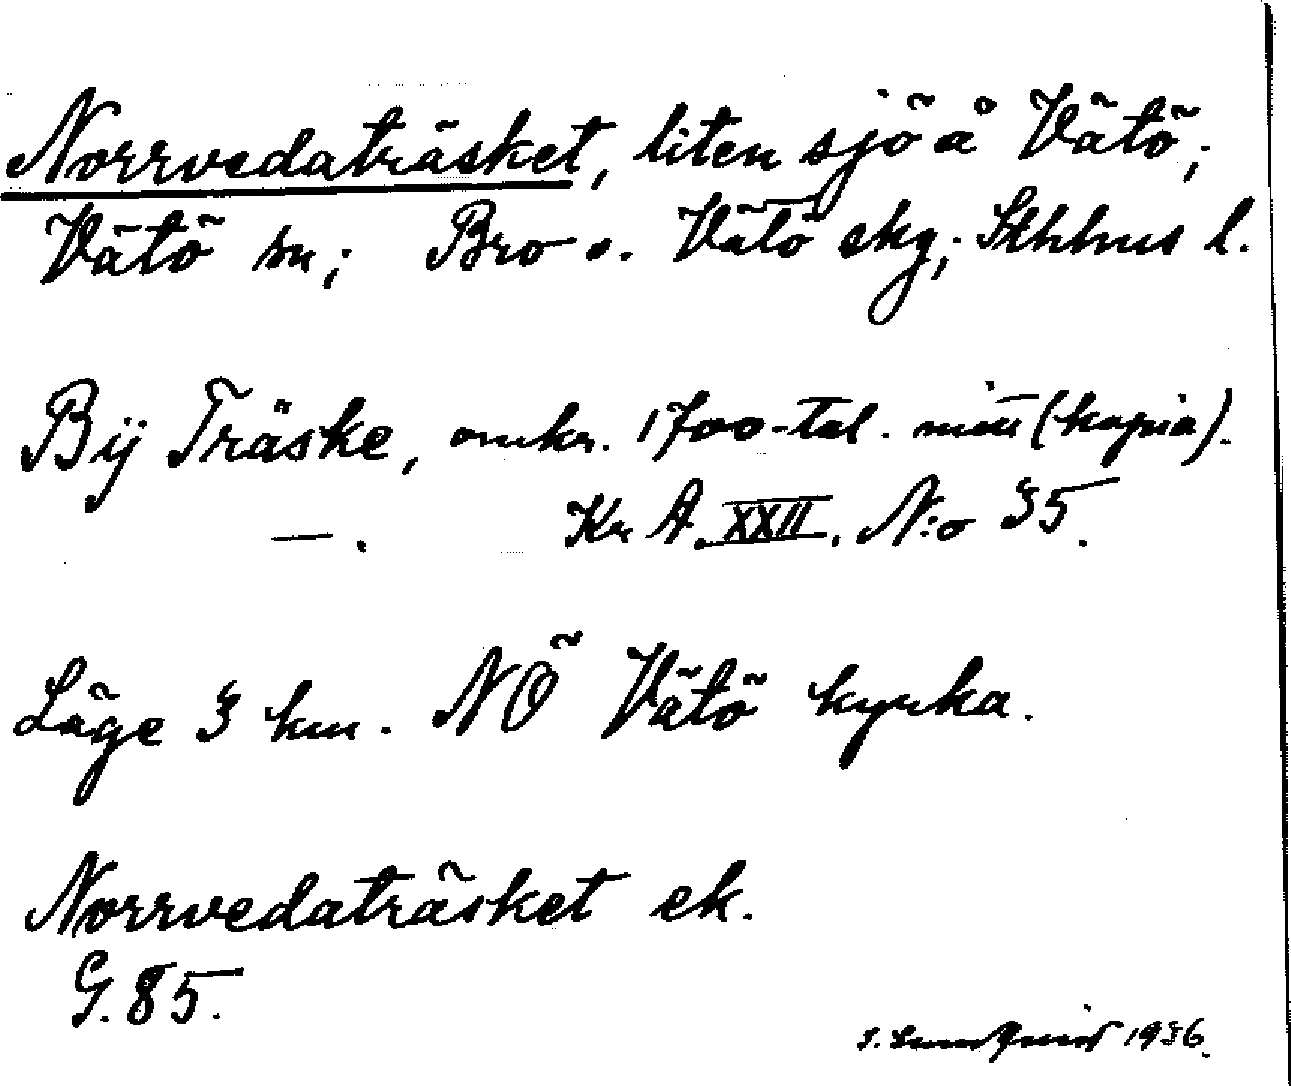 Norrvedaträsket, liten sjö å Vätö;
Vätö sn; Bro o. Vätö skg; Sthlms l.
Bij Träske, omkr. 1700-tal. mitt (kopia).
—. Kr A. XXII. N:o 35.
Läge 3 km. NÖ Vätö kyrka.
Norrvedaträsket ek.
G. 85.
S. Lundquist 1936.